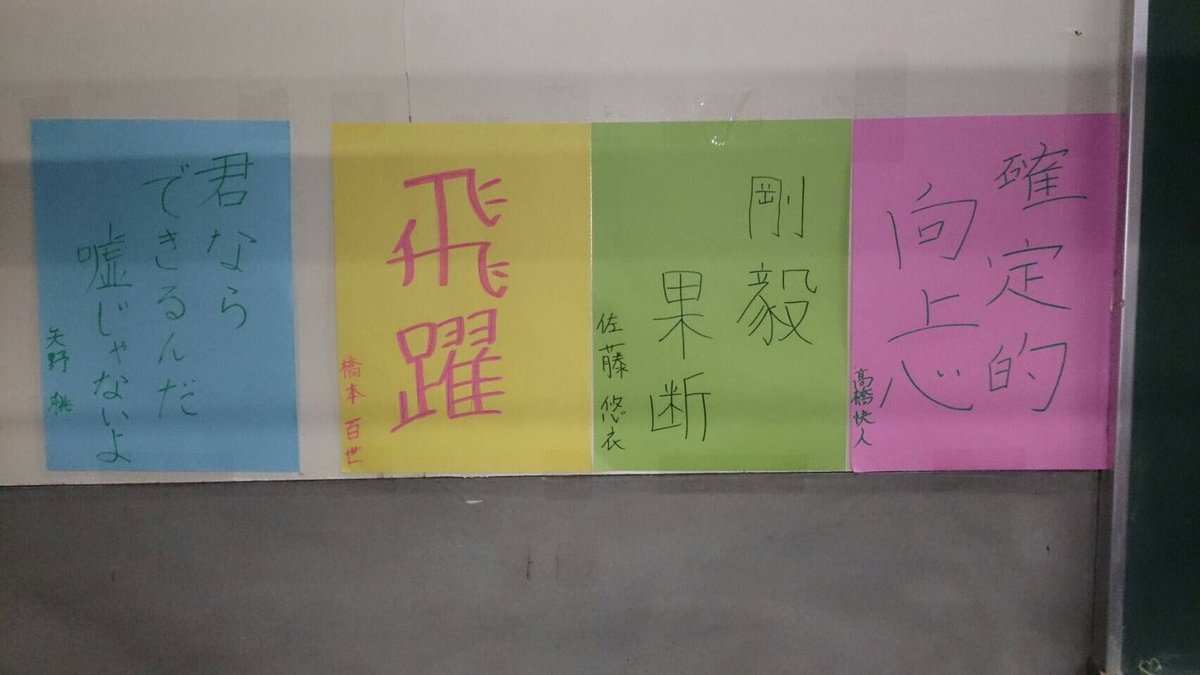 確定的
向上心
高橋快人
剛毅
果断
佐藤 悠衣
飛躍
橋本 百世
君なら
できるんだ
嘘じゃないよ
矢野 桃